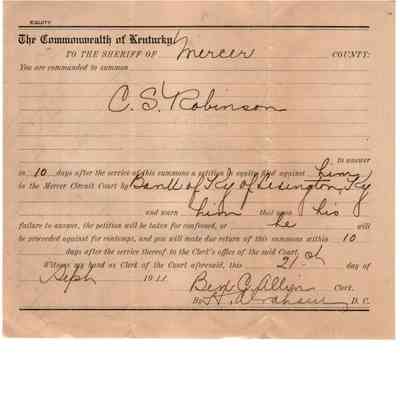 EQUITY
The Commonwealth of Kentucky
TO THE SHERIFF OF Mercer COUNTY:
You are commanded to summon
C. S. Robinson
to answer
in 10 days after the service of this summons a petition in equity filed against him
in the Mercer Circuit Court by Bank of Ky of Lexington, Ky
and warn him that upon his
failure to answer, the petition will be taken for confessed, or he will
be proceeded against for contempt, and you will make due return of this summons within 10
days after the service thereof to the Clerk's office of the said Court.
Witness my hand as Clerk of the Court aforesaid, this 21 day of
Sept 1911. Ben C. Allin Clerk.
By D. C.